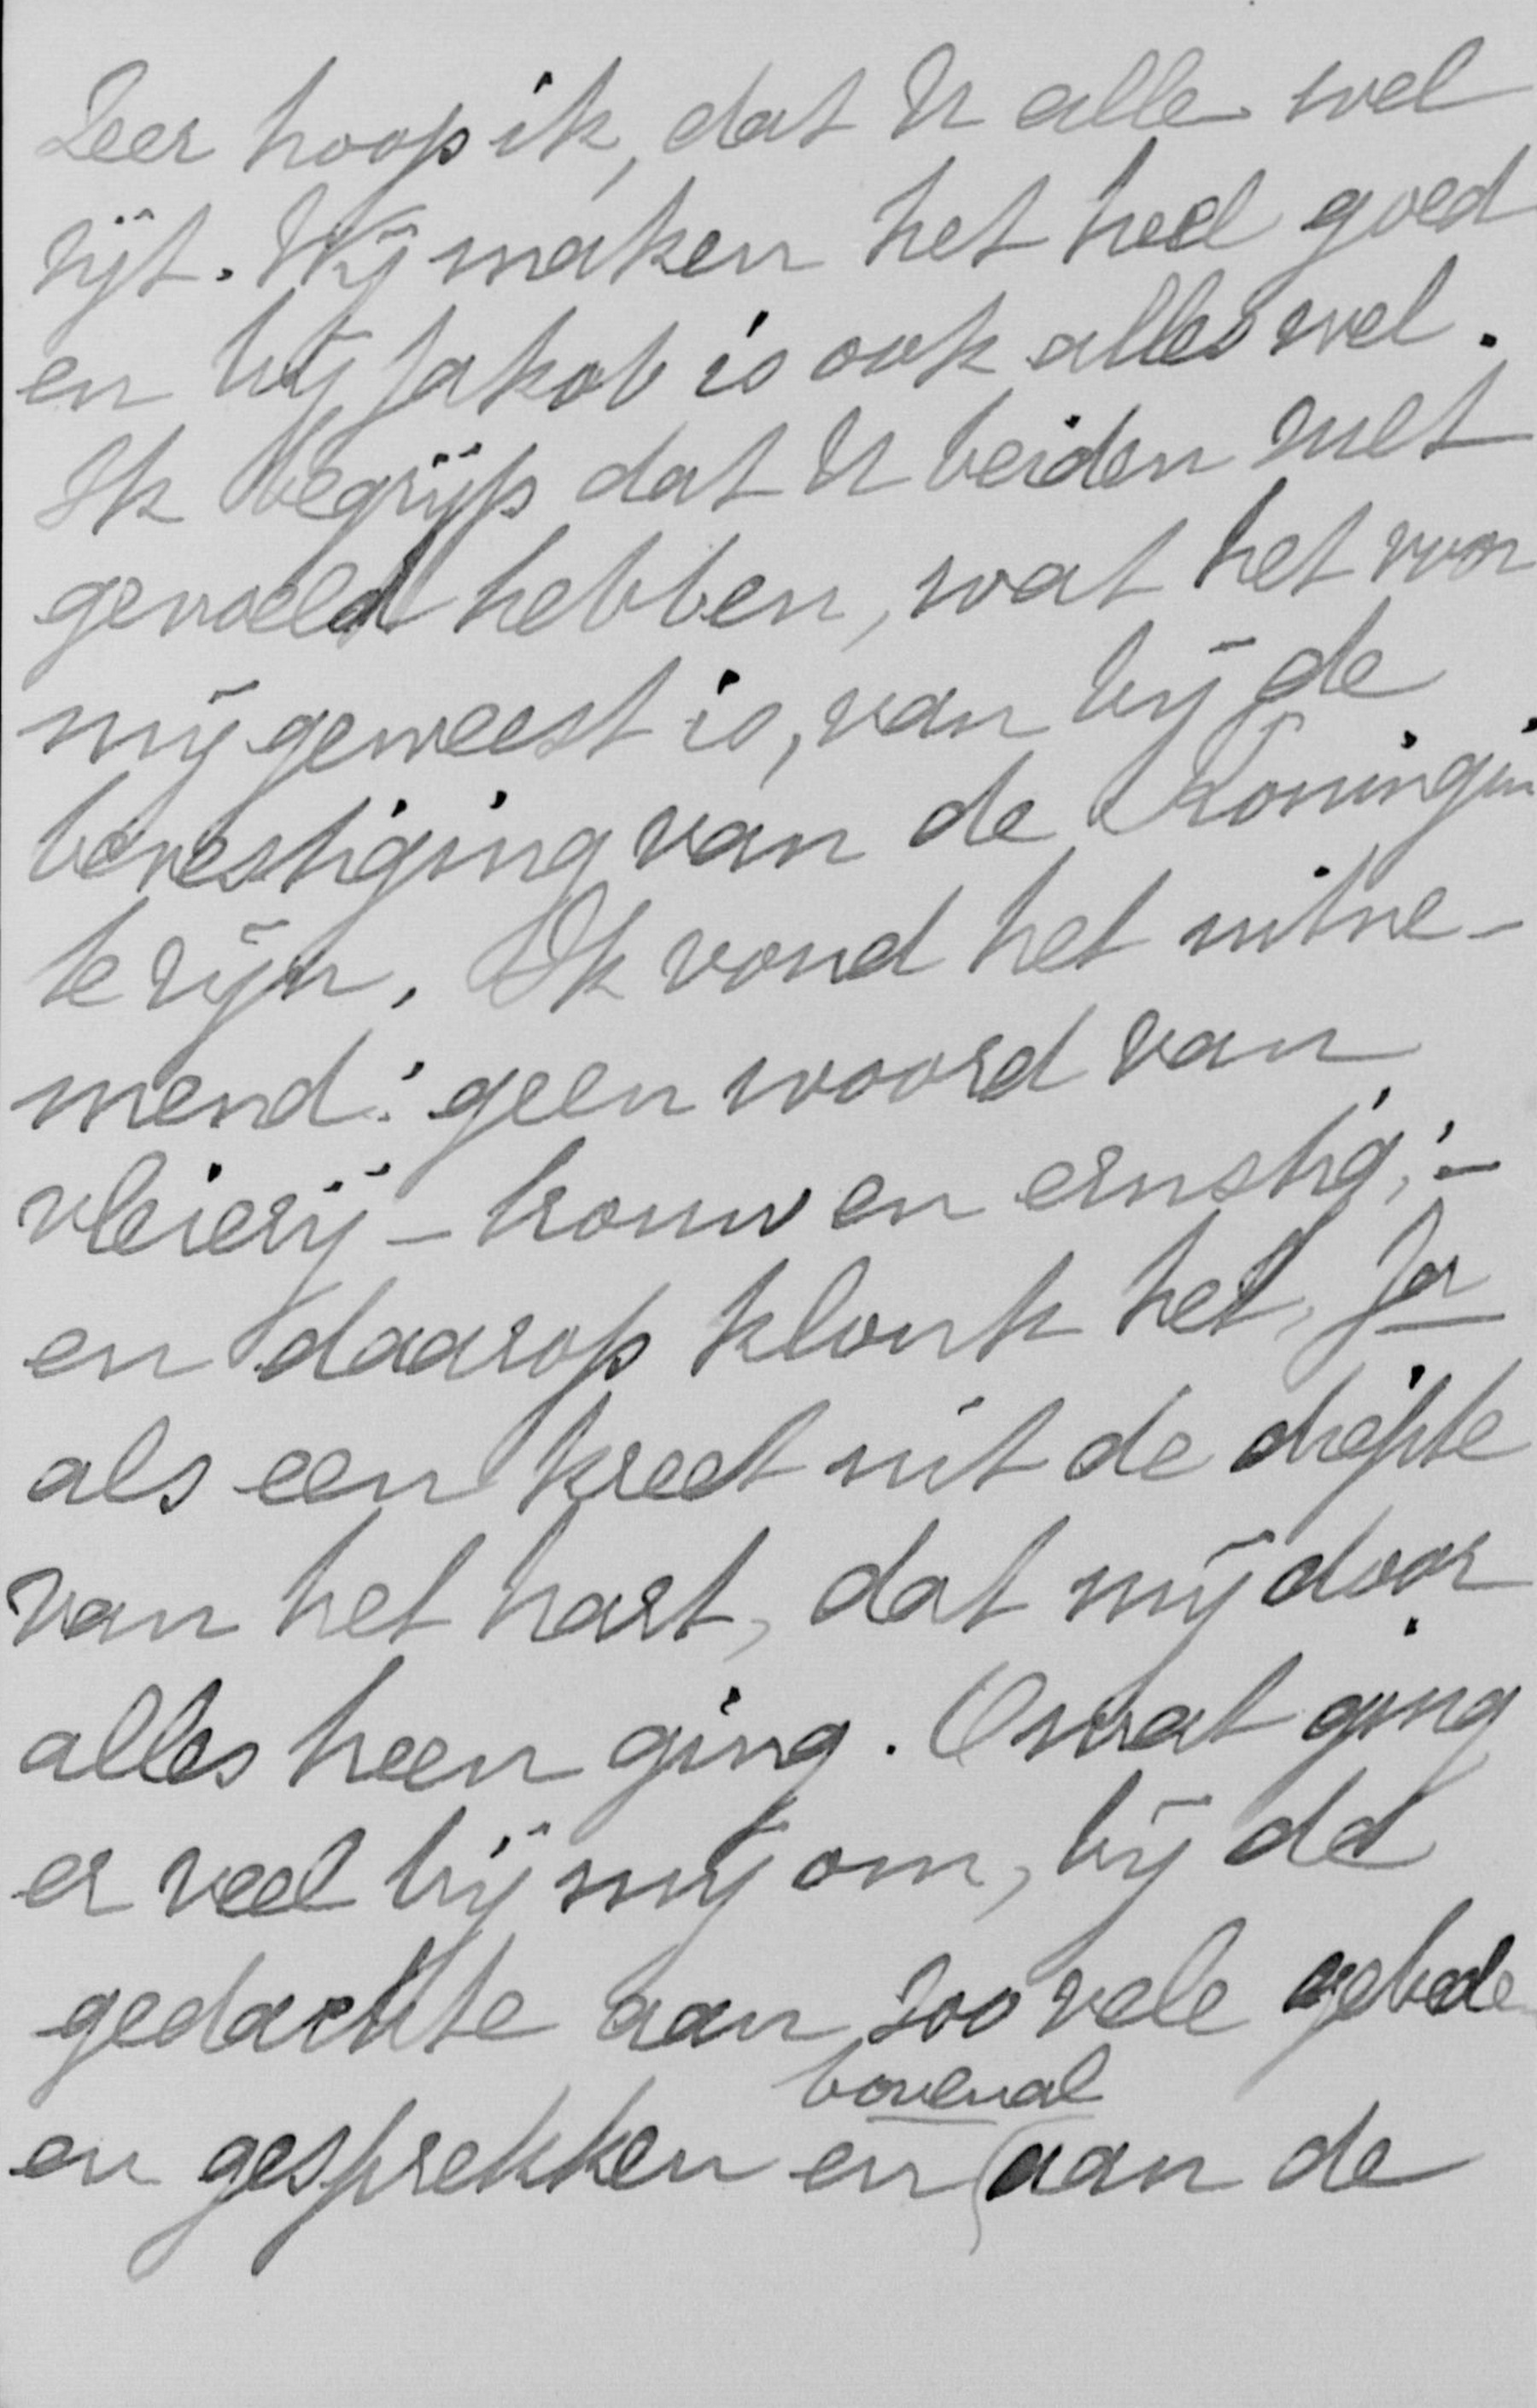 Zeer hoop ik, dat U alle wel
zijt. Wij maken het heel goed
en bij Jakob is ook alles wel.
Ik begrijp dat U beiden met
gevoeld hebben, wat het voor
mij geweest is, van bij de
bevestiging van de Koningin
te zijn. Ik vond het uitne-
mend: geen woord van
vleierij – trouw en ernstig; –
en daarop klonk het, Ja
als een kreet uit de diepte
van het hart, dat mij door
alles heen ging. O wat ging
er veel bij mij om, bij de
gedachte aan zoo vele gebede
bovenal
en gesprekken en (aan de